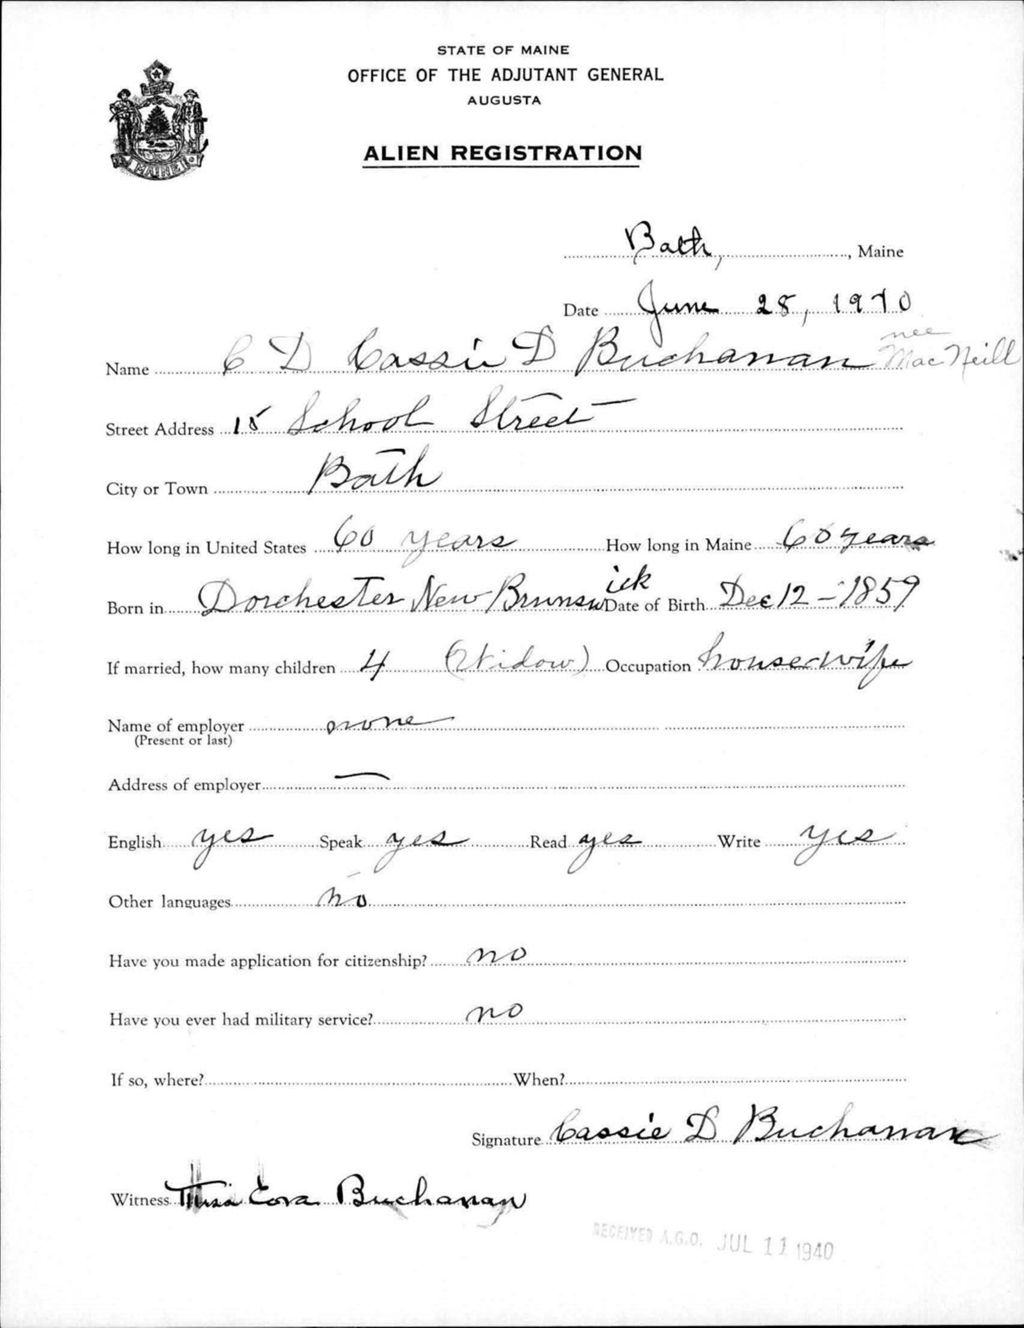 STATE OF MAINE
OFFICE OF THE ADJUTANT GENERAL
AUGUSTA
ALIEN REGISTRATION
MAINE
Bath, , Maine
Date June 28, 1940
nee
Name C D Cassie D Buchanan MacNeill
Street Address 15 School Street
City or Town Bath
How long in United States 60 years How long in Maine 60 years
Born in Dorchester New Brunswick Date of Birth Dec 12 - 1859
If married, how many children 4 (Widow) Occupation housewife
Name of employer none
(Present or last)
Address of employer —
English yes Speak yes Read yes Write yes
Other languages no
Have you made application for citizenship? no
Have you ever had military service? no
If so, where? When?
Signature Cassie D Buchanan
Witness Miss Buchanan
RECEIVED A.G.O. JUL 11 1940